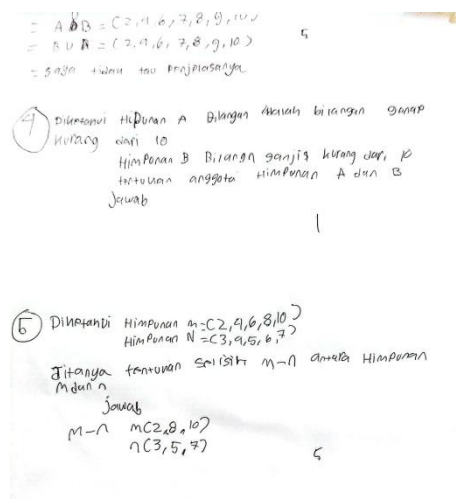 = A B = (2,4,6,7,8,9,10)
= B U A = (2,4,6,7,8,9,10)
5
= saya tidau tau penjelasanya
4 Diketahui Hipunan A Bilangan adalah bilangan ganap
kurang dari 10
Himponan B Bilangn ganjig kurang dari 10
tentuuan anggota Himpunan A dan B
Jawab
1
5 Diketahui Himpunan m=(2,4,6,8,10)
Himpunan N=(3,4,5,6,7)
Ditanya tentuuan selisih m-n antara Himpunan
m dan n
jawab
m-n m(2,8,10)
n(3,5,7)
5